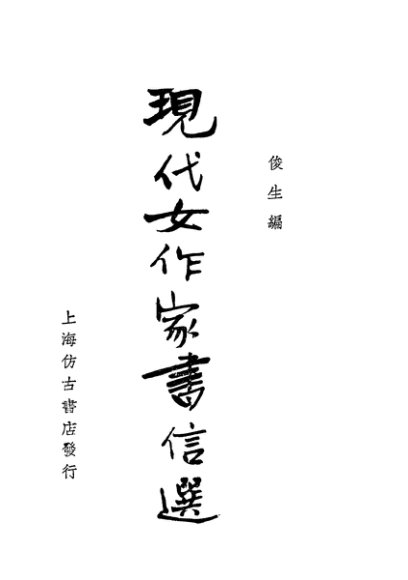 俊生編
現代女作家書信選
上海仿古書店發行